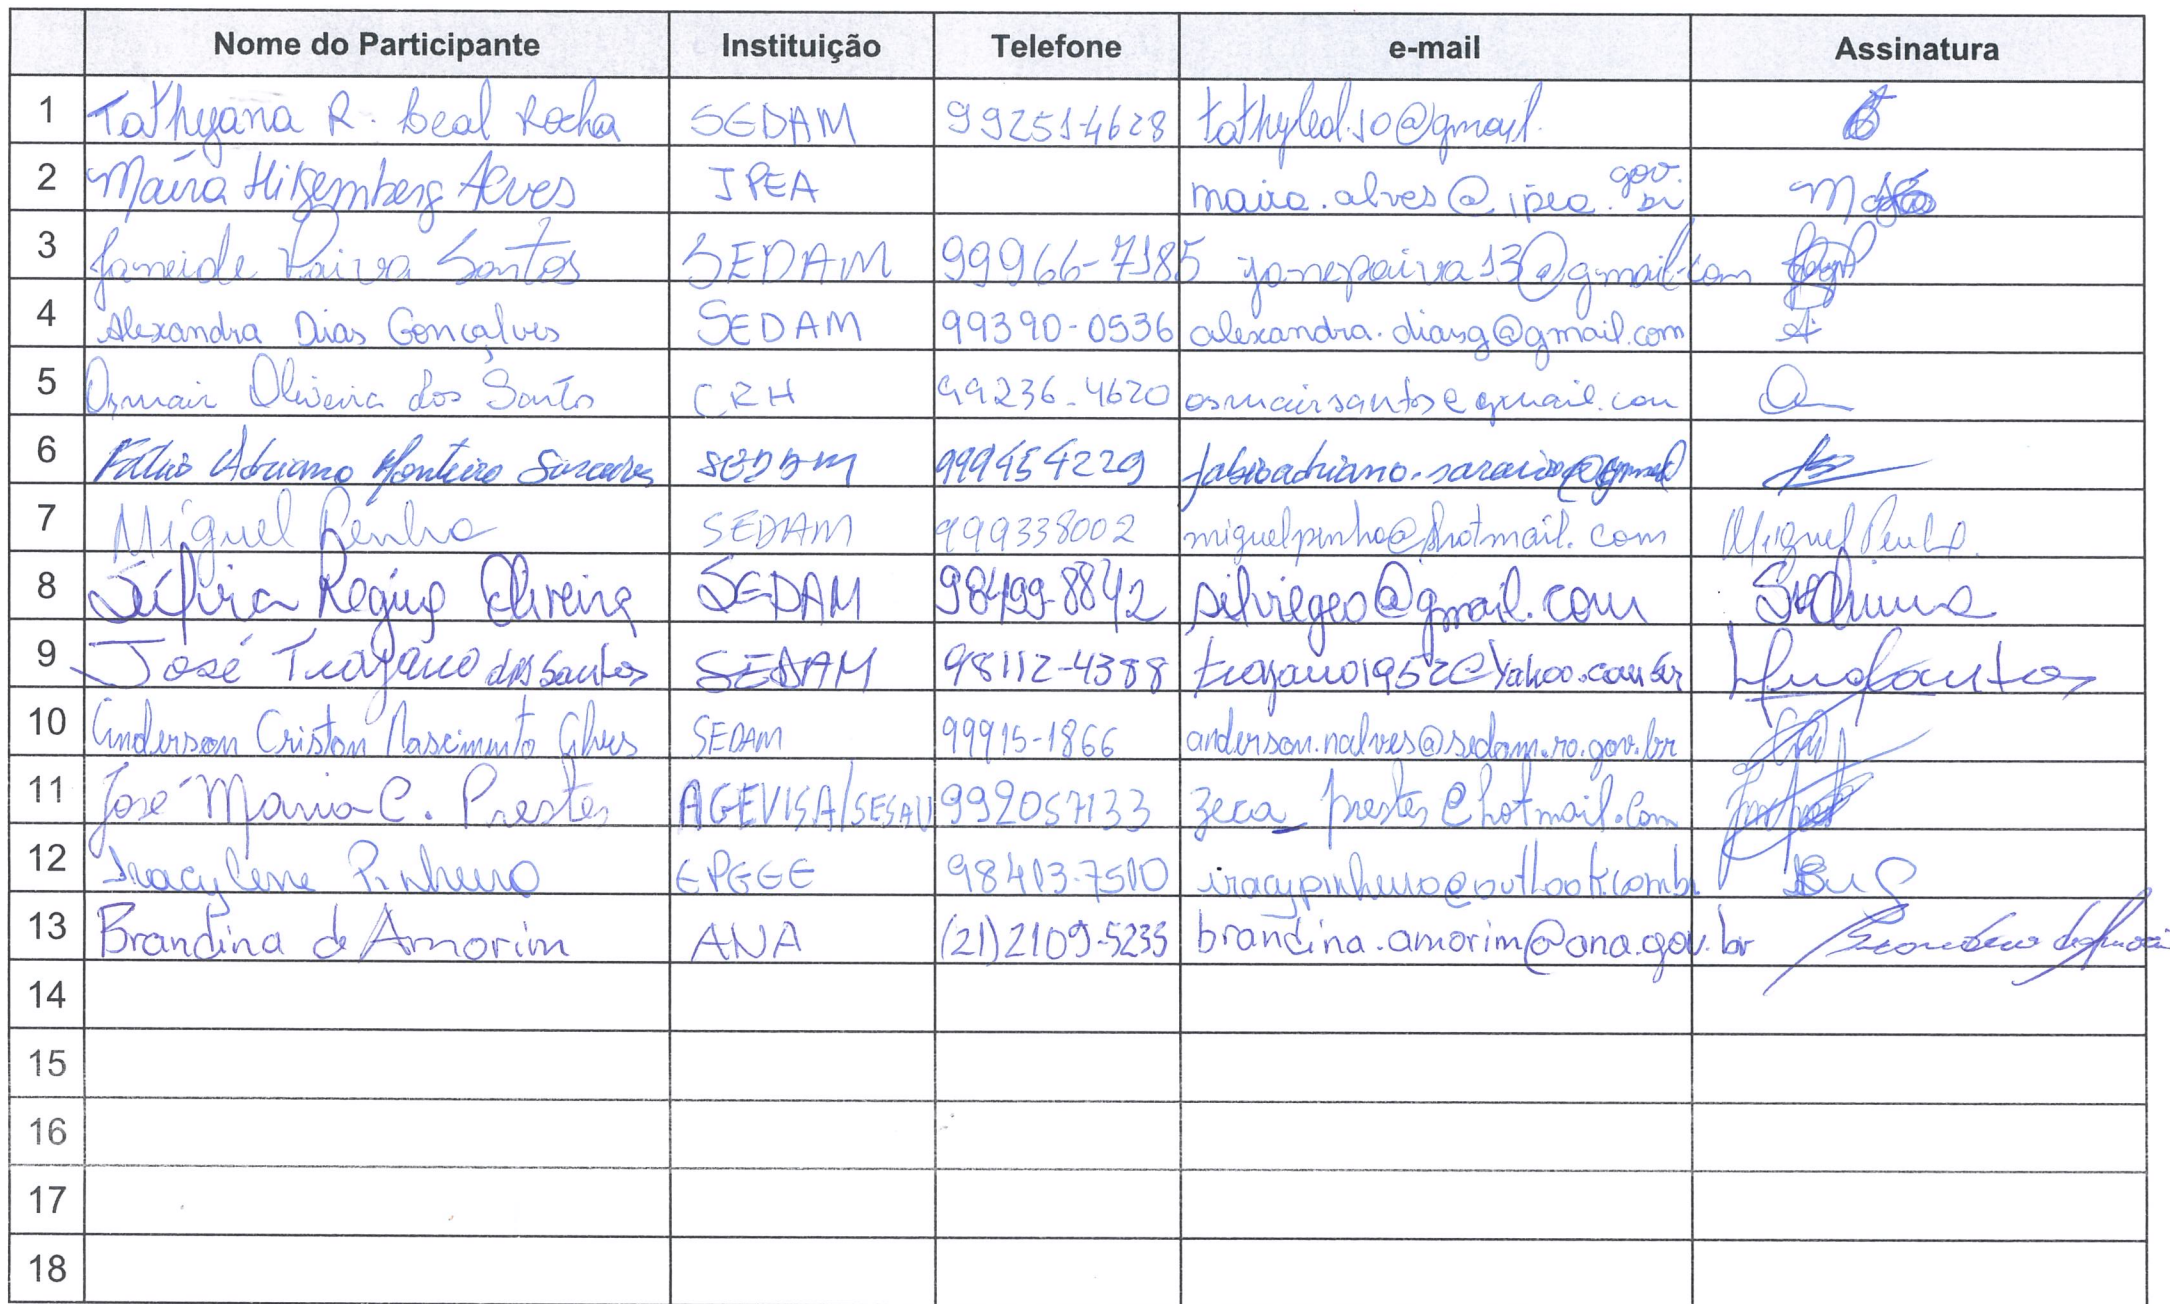 Nome do Participante Instituição Telefone e-mail Assinatura
1 Tathyana R. Leal Rocha SEDAM 99251-4628
2 Maíra Alves IPEA maira.alves@ipea.gov.br
3 Paiva Santos SEDAM 99966-7185 janepaiva13@gmail.com
4 Alexandra Dias Gonçalves SEDAM 99390-0536 alexandra.diasg@gmail.com
5 Osmair Oliveira dos Santos CRH 99236-4620 osmairsantos@gmail.com
6 Fábio Adriano Monteiro SEDAM 999454229
7 Miguel Penha SEDAM 999338002 Miguel Penha
8 Silvia Regina Oliveira SEDAM 98499-8842
9 José Trajano dos Santos SEDAM 98112-4388 trajano1952@yahoo.com.br
10 Anderson Criston Nascimento Alves SEDAM 99915-1866 anderson.nalves@sedam.ro.gov.br
11 José Maria C. Prestes AGEVISA/SESAU 992057133 zeca_prestes@hotmail.com
12 Iracylene Pinheiro EPGGE
13 Brandina de Amorim ANA (21)2109-5235 brandina.amorim@ana.gov.br
14
15
16
17
18